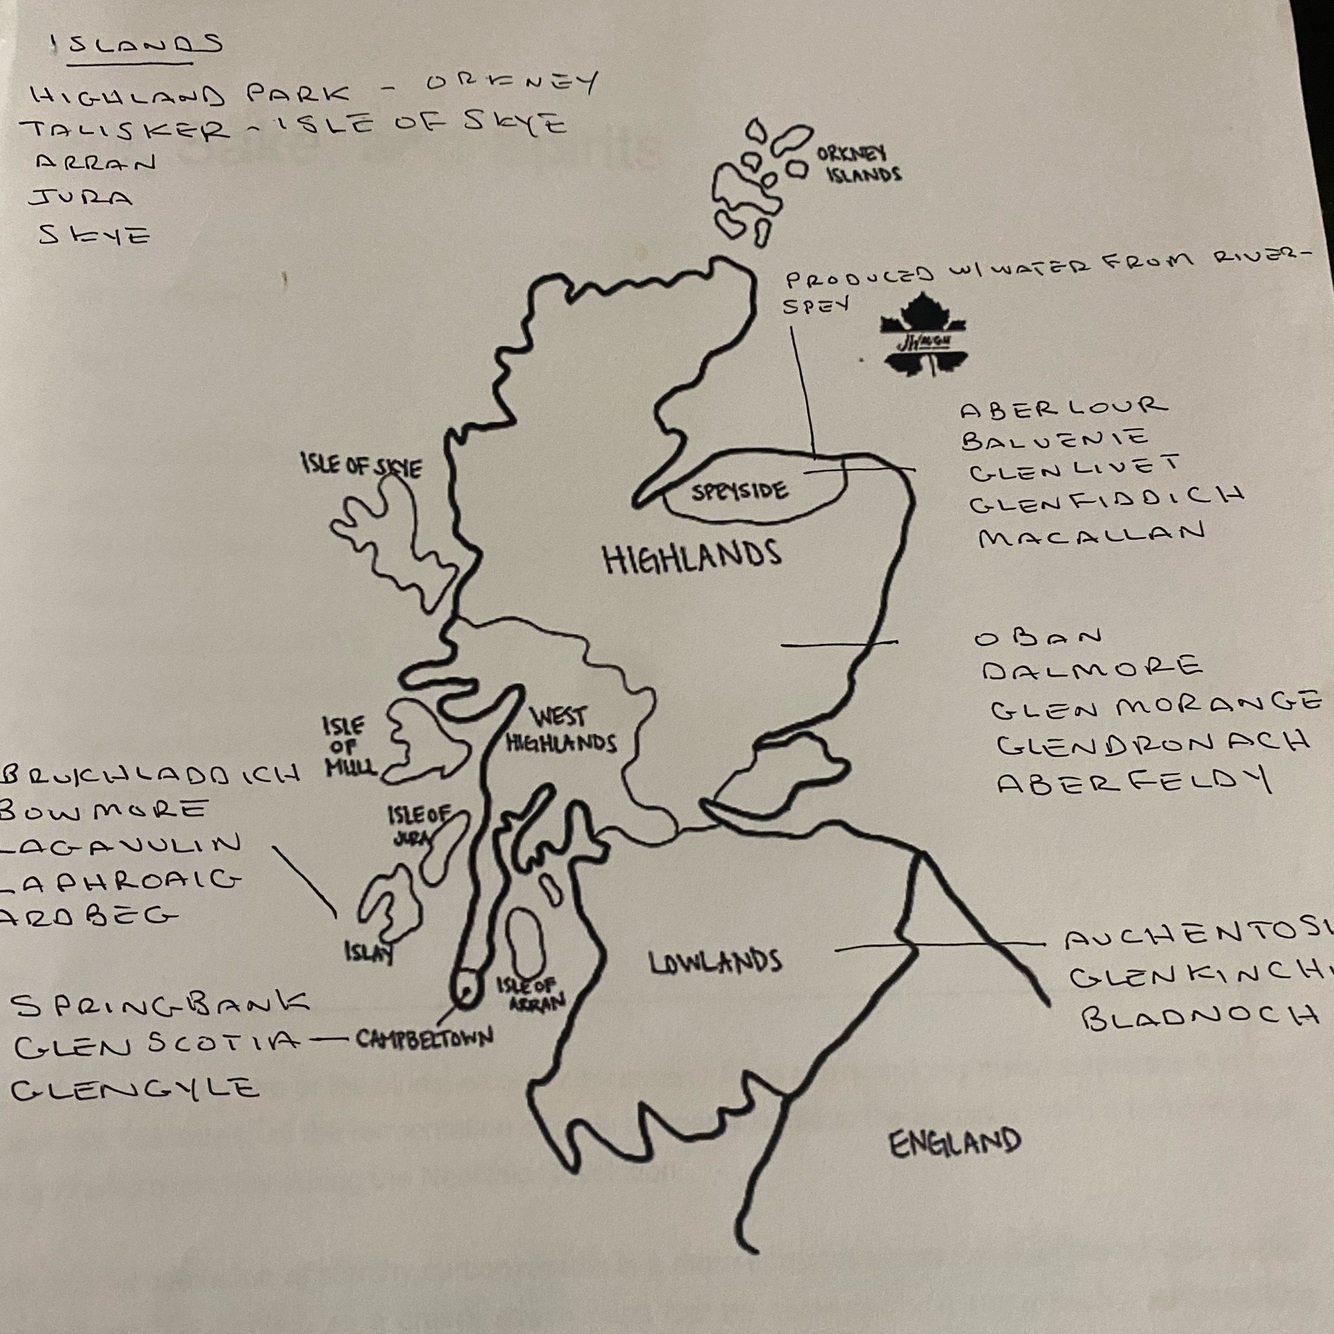 ISLANDS
HIGHLAND PARK - ORKNEY
TALISKER - ISLE OF SKYE
ARRAN
JURA
SKYE
ORKNEY
ISLANDS
PRODUCED W/ WATER FROM RIVER-
SPEY
ABERLOUR
BALVENIE
GLENLIVET
GLENFIDDICH
MACALLAN
ISLE OF SKYE
SPEYSIDE
HIGHLANDS
OBAN
DALMORE
GLENMORANGE
GLENDRONACH
ABERFELDY
WEST
HIGHLANDS
ISLE
OF
MULL
BRUICHLADDICH
BOWMORE
LAGAVULIN
LAPHROAIG
ARDBEG
ISLE OF
JURA
ISLAY
ISLE OF
ARRAN
LOWLANDS
AUCHENTOS
GLENKINCHI
BLADNOCH
SPRINGBANK
GLEN SCOTIA — CAMPBELTOWN
GLENGYLE
ENGLAND